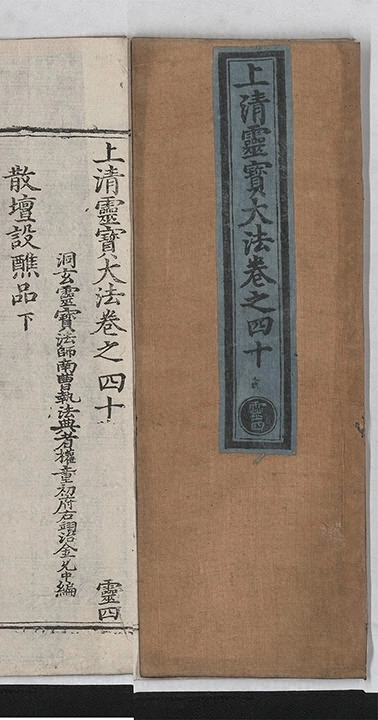 上清靈寶大法卷之四十
靈四
上清靈寶大法卷之四十
靈四
洞玄靈寶法師南曹執法典者權童初府右翊治金允中編
散壇設醮品下